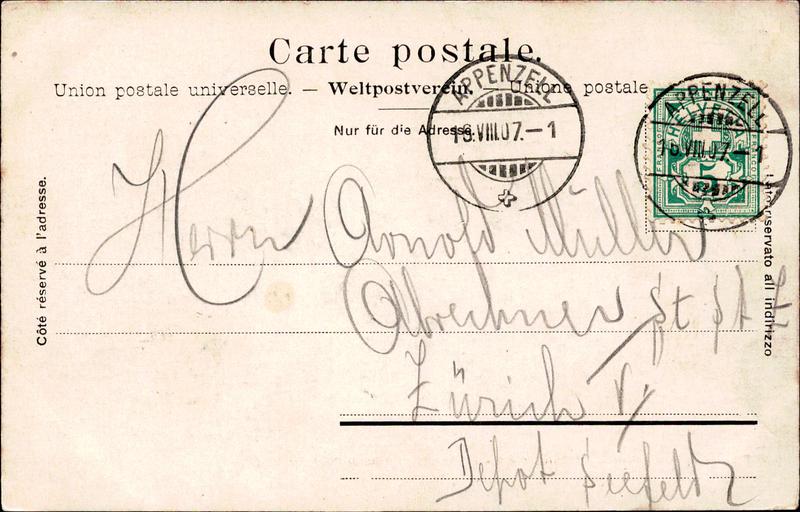 Carte postale.
Union postale universelle. — Weltpostverein. — Unione postale
Nur für die Adresse.
APPENZELL
18.VIII.07.–1
APPENZELL
18.VIII.07.–1
HELVETIA
5
Côté réservé à l'adresse.
Lato riservato all indirizzo
Herrn Arnold Müller
Abrechner St St
Zürich V
Depot Seefeld